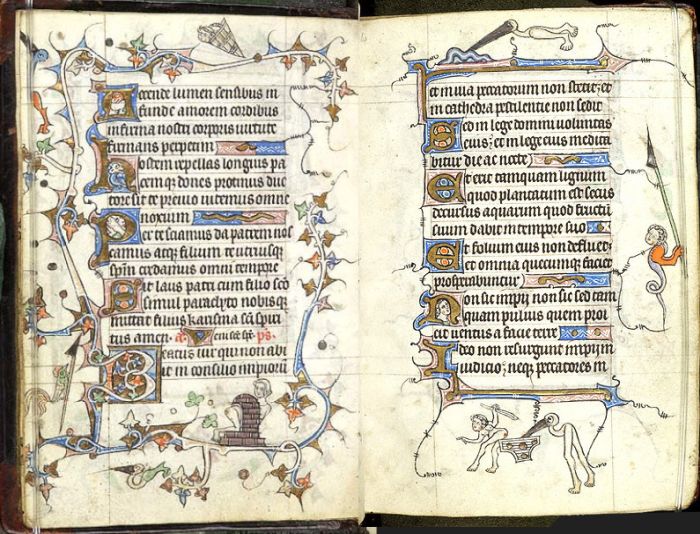 Accende lumen sensibus in
funde amorem cordibus
infirma nostri corporis virtute
firmans perpetim
Hostem repellas longius pa
cemq; dones protinus duc
tore sic te previo vitemus omne
noxium
Per te sciamus da patrem nos
camus atq; filium te utriusq;
spm credamus omni tempore
Sit laus patri cum filio sco
simul paraclyto nobisq;
mittat filius karisma sci spiri
tus amen. a. Veni sce sps. ps.
Beatus vir qui non abi
it in consilio impiorum
et in via peccatorum non stetit; et
in cathedra pestilentie non sedit
Sed in lege domini voluntas
eius; et in lege eius medita
bitur die ac nocte
Et erit tamquam lignum
quod plantatum est secus
decursus aquarum quod fructum
suum dabit in tempore suo
Et folium eius non defluet;
et omnia quecumq; faciet
prosperabuntur
Non sic impii non sic sed tam
quam pulvis quem proi
cit ventus a facie terre
Ideo non resurgunt impii in
iudicio; neq; peccatores in